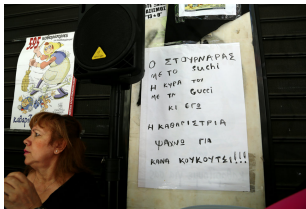 595
Ο ΣΤΟΥΡΝΑΡΑΣ
ΜΕ ΤΟ suchi
Η ΚΥΡΑ ΤΟΥ
ΜΕ ΤΑ Gucci
ΚΙ ΕΓΩ
Η ΚΑΘΑΡΙΣΤΡΙΑ
ΨΑΧΝΩ ΓΙΑ
ΚΑΝΑ ΚΟΥΚΟΥΤΣΙ!!!